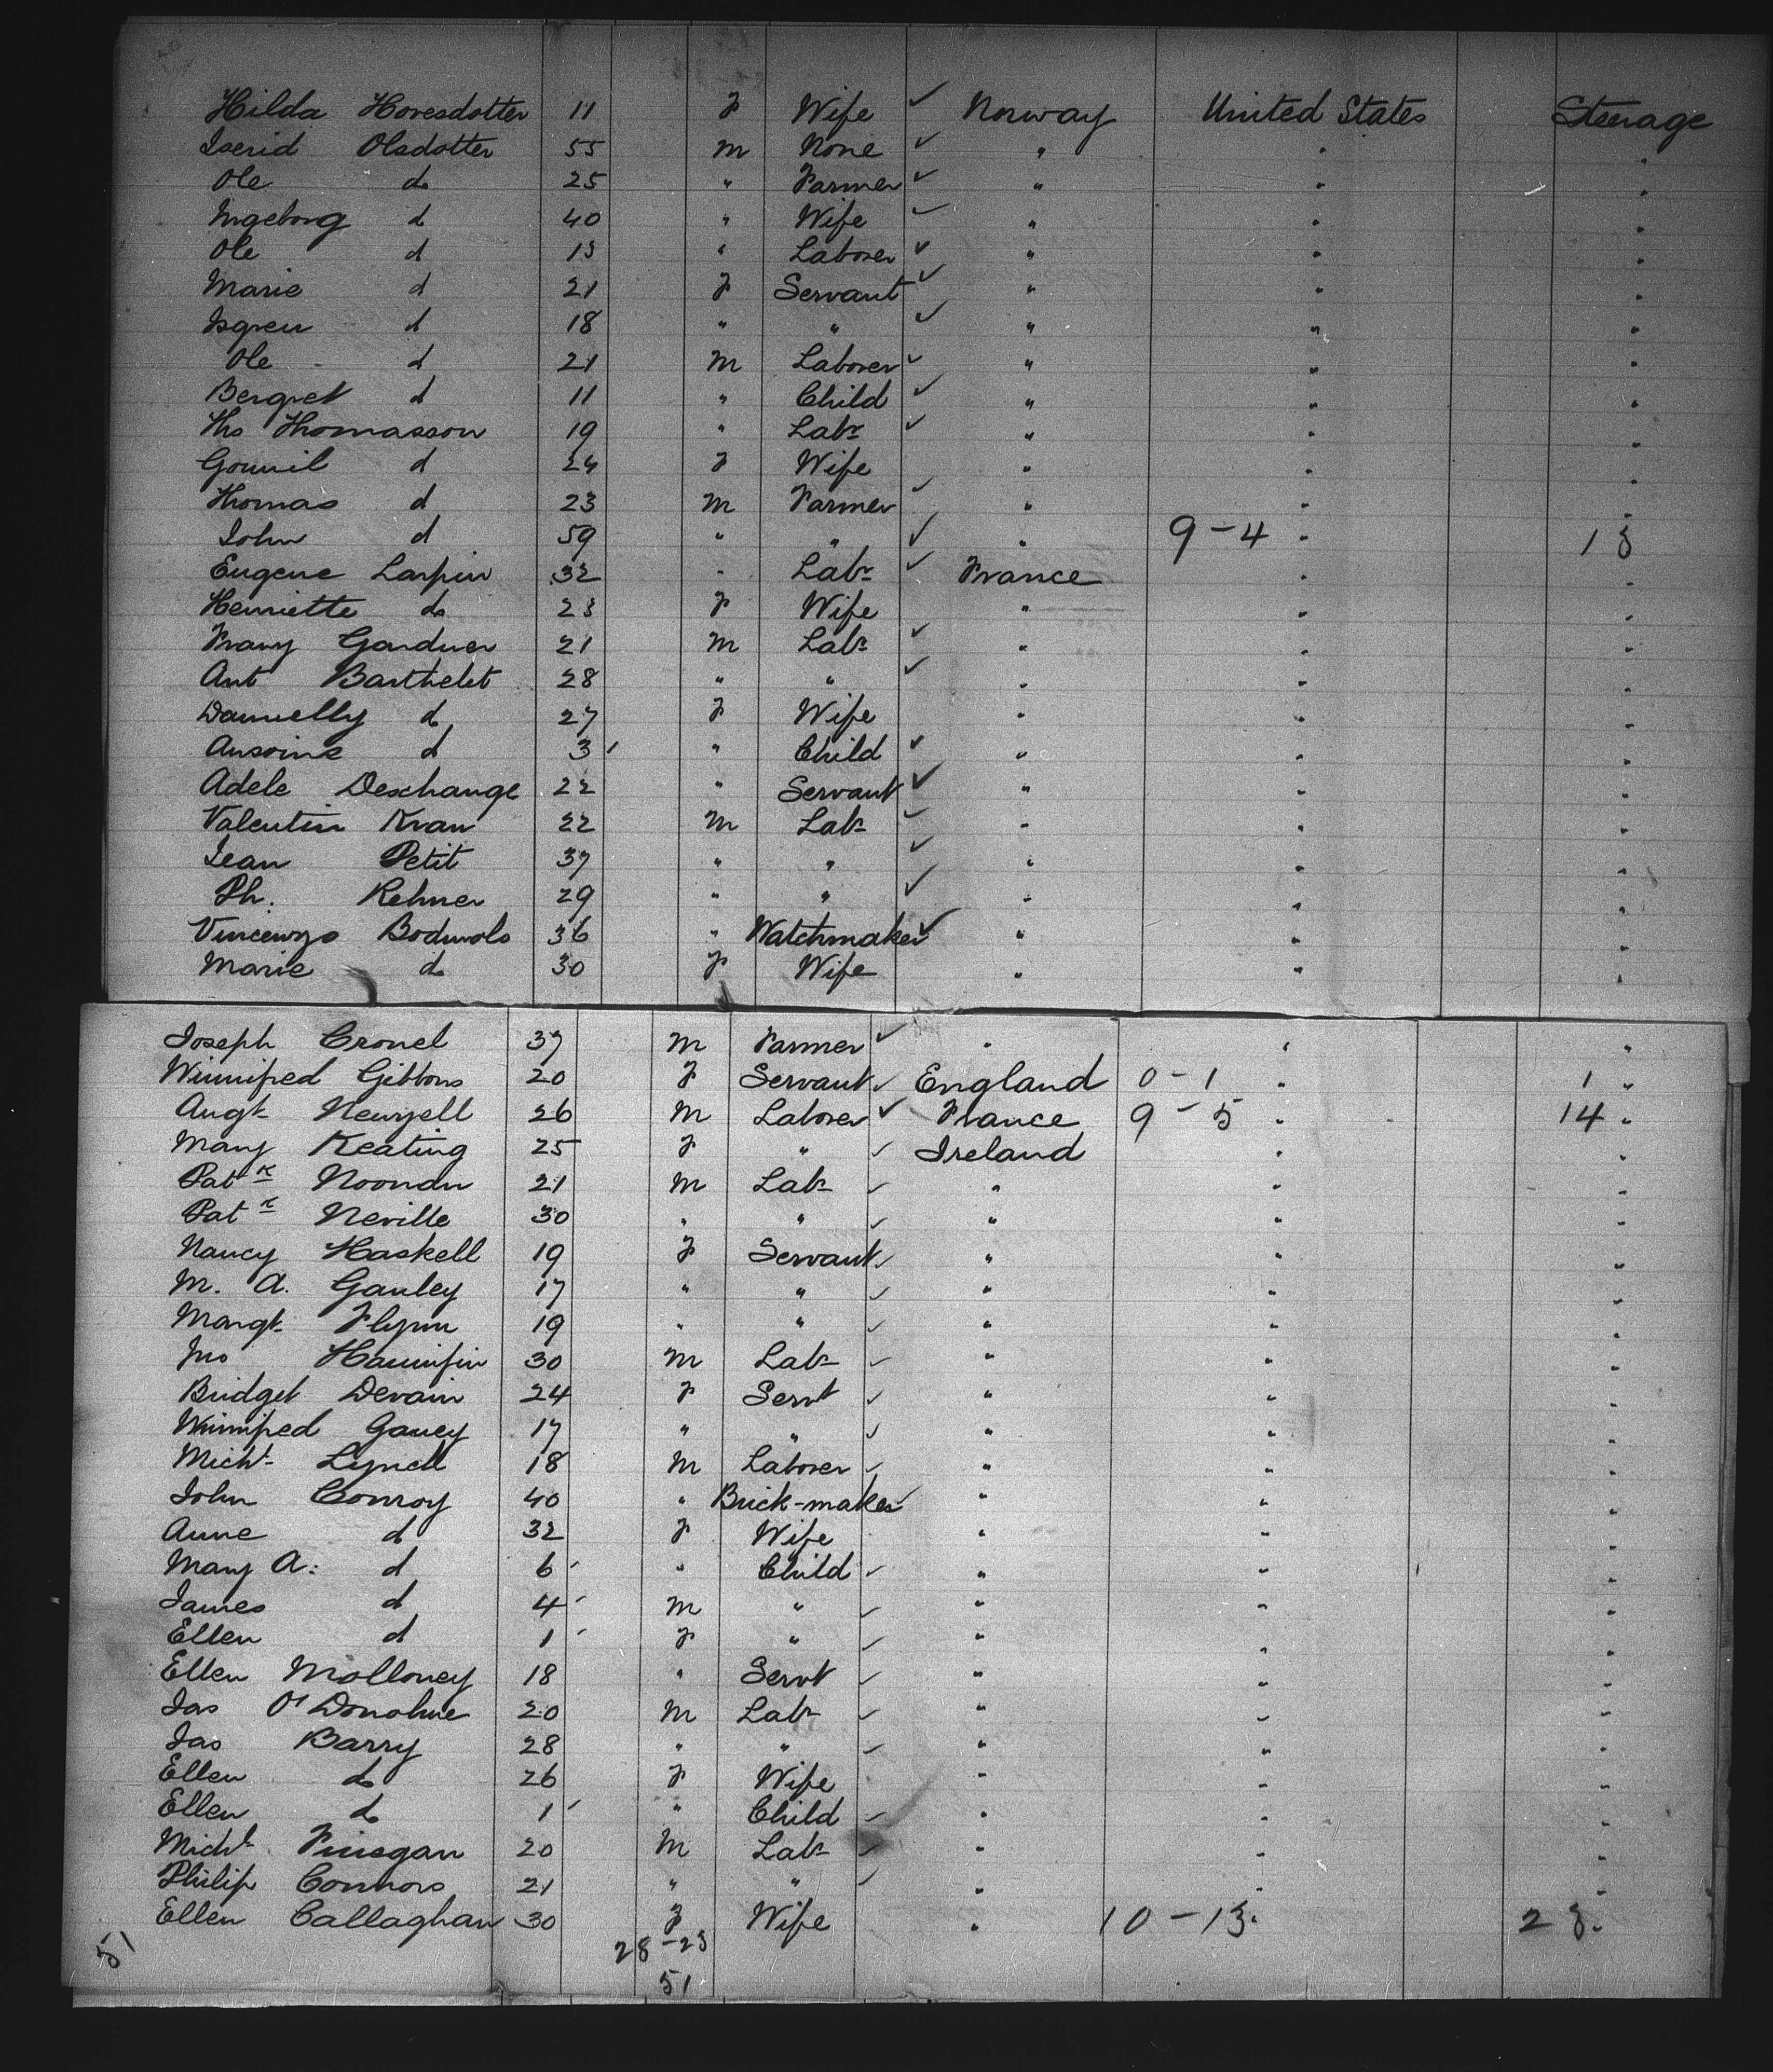 Hilda Hovesdotter 11 F Wife ✓ Norway United States Steerage
Iserid Olsdotter 55 M None ✓ " " "
Ole do 25 " Farmer ✓ " " "
Ingeborg d 40 " Wife ✓ " " "
Ole d 13 " Laborer ✓ " " "
Marie d 21 F Servant ✓ " " "
d 18 " " ✓ " " "
Ole d 21 M Laborer ✓ " " "
Bergret d 11 " Child ✓ " " "
Ths Thomasson 19 " Labr ✓ " " "
Gounil d 24 F Wife " " "
Thomas d 23 M Farmer ✓ " " "
John d 59 " " ✓ " 9-4 " 13
Eugene Larpin 32 " Labr ✓ France " "
Henriette do 23 F Wife " " "
Frany Gardner 21 M Labr ✓ " " "
Ant Barthelet 28 " " ✓ " " "
Dannelly d 27 F Wife " " "
Ansoine d 3 ' " Child ✓ " " "
Adele Deschange 22 " Servant ✓ " " "
Valentin Kran 22 M Labr ✓ " " "
Jean Petit 37 " " ✓ " " "
Ph. Rehner 29 " " ✓ " " "
Vincenzo 36 " Watchmaker ✓ " " "
Marie do 30 F Wife " " "
Joseph Cronel 37 M Farmer ✓ " " "
Winnifred Gibbons 20 F Servant ✓ England 0-1 " 1 "
Augt Newzell 26 M Laborer ✓ France 9-5 " 14 "
Mary Keating 25 F " ✓ Ireland " "
Patk Noonan 21 M Labr ✓ " " "
Patk Neville 30 " " ✓ " " "
Nancy Haskell 19 F Servant ✓ " " "
M. A. Ganley 17 " " ✓ " " "
Margt Flynn 19 " " ✓ " " "
Jno Hannifin 30 M Labr ✓ " " "
Bridget Devain 24 F Servt ✓ " " "
Winnifred Gavey 17 " " ✓ " " "
Michl Lynch 18 M Laborer ✓ " " "
John Conroy 40 " Brick-maker ✓ " " "
Anne d 32 F Wife " " "
Mary A: d 6 ' " Child ✓ " " "
James d 4 ' M " ✓ " " "
Ellen d 1 ' F " ✓ " " "
Ellen Molloney 18 " Servt ✓ " " "
Jas O'Donohue 20 M Labr ✓ " " "
Jas Barry 28 " " ✓ " " "
Ellen do 26 F Wife " " "
Ellen do 1 ' " Child ✓ " " "
Michl Finegan 20 M Labr ✓ " " "
Philip Connors 21 " " ✓ " " "
Ellen Callaghan 30 F Wife " 10-13 " 23 "
51 28-23
51